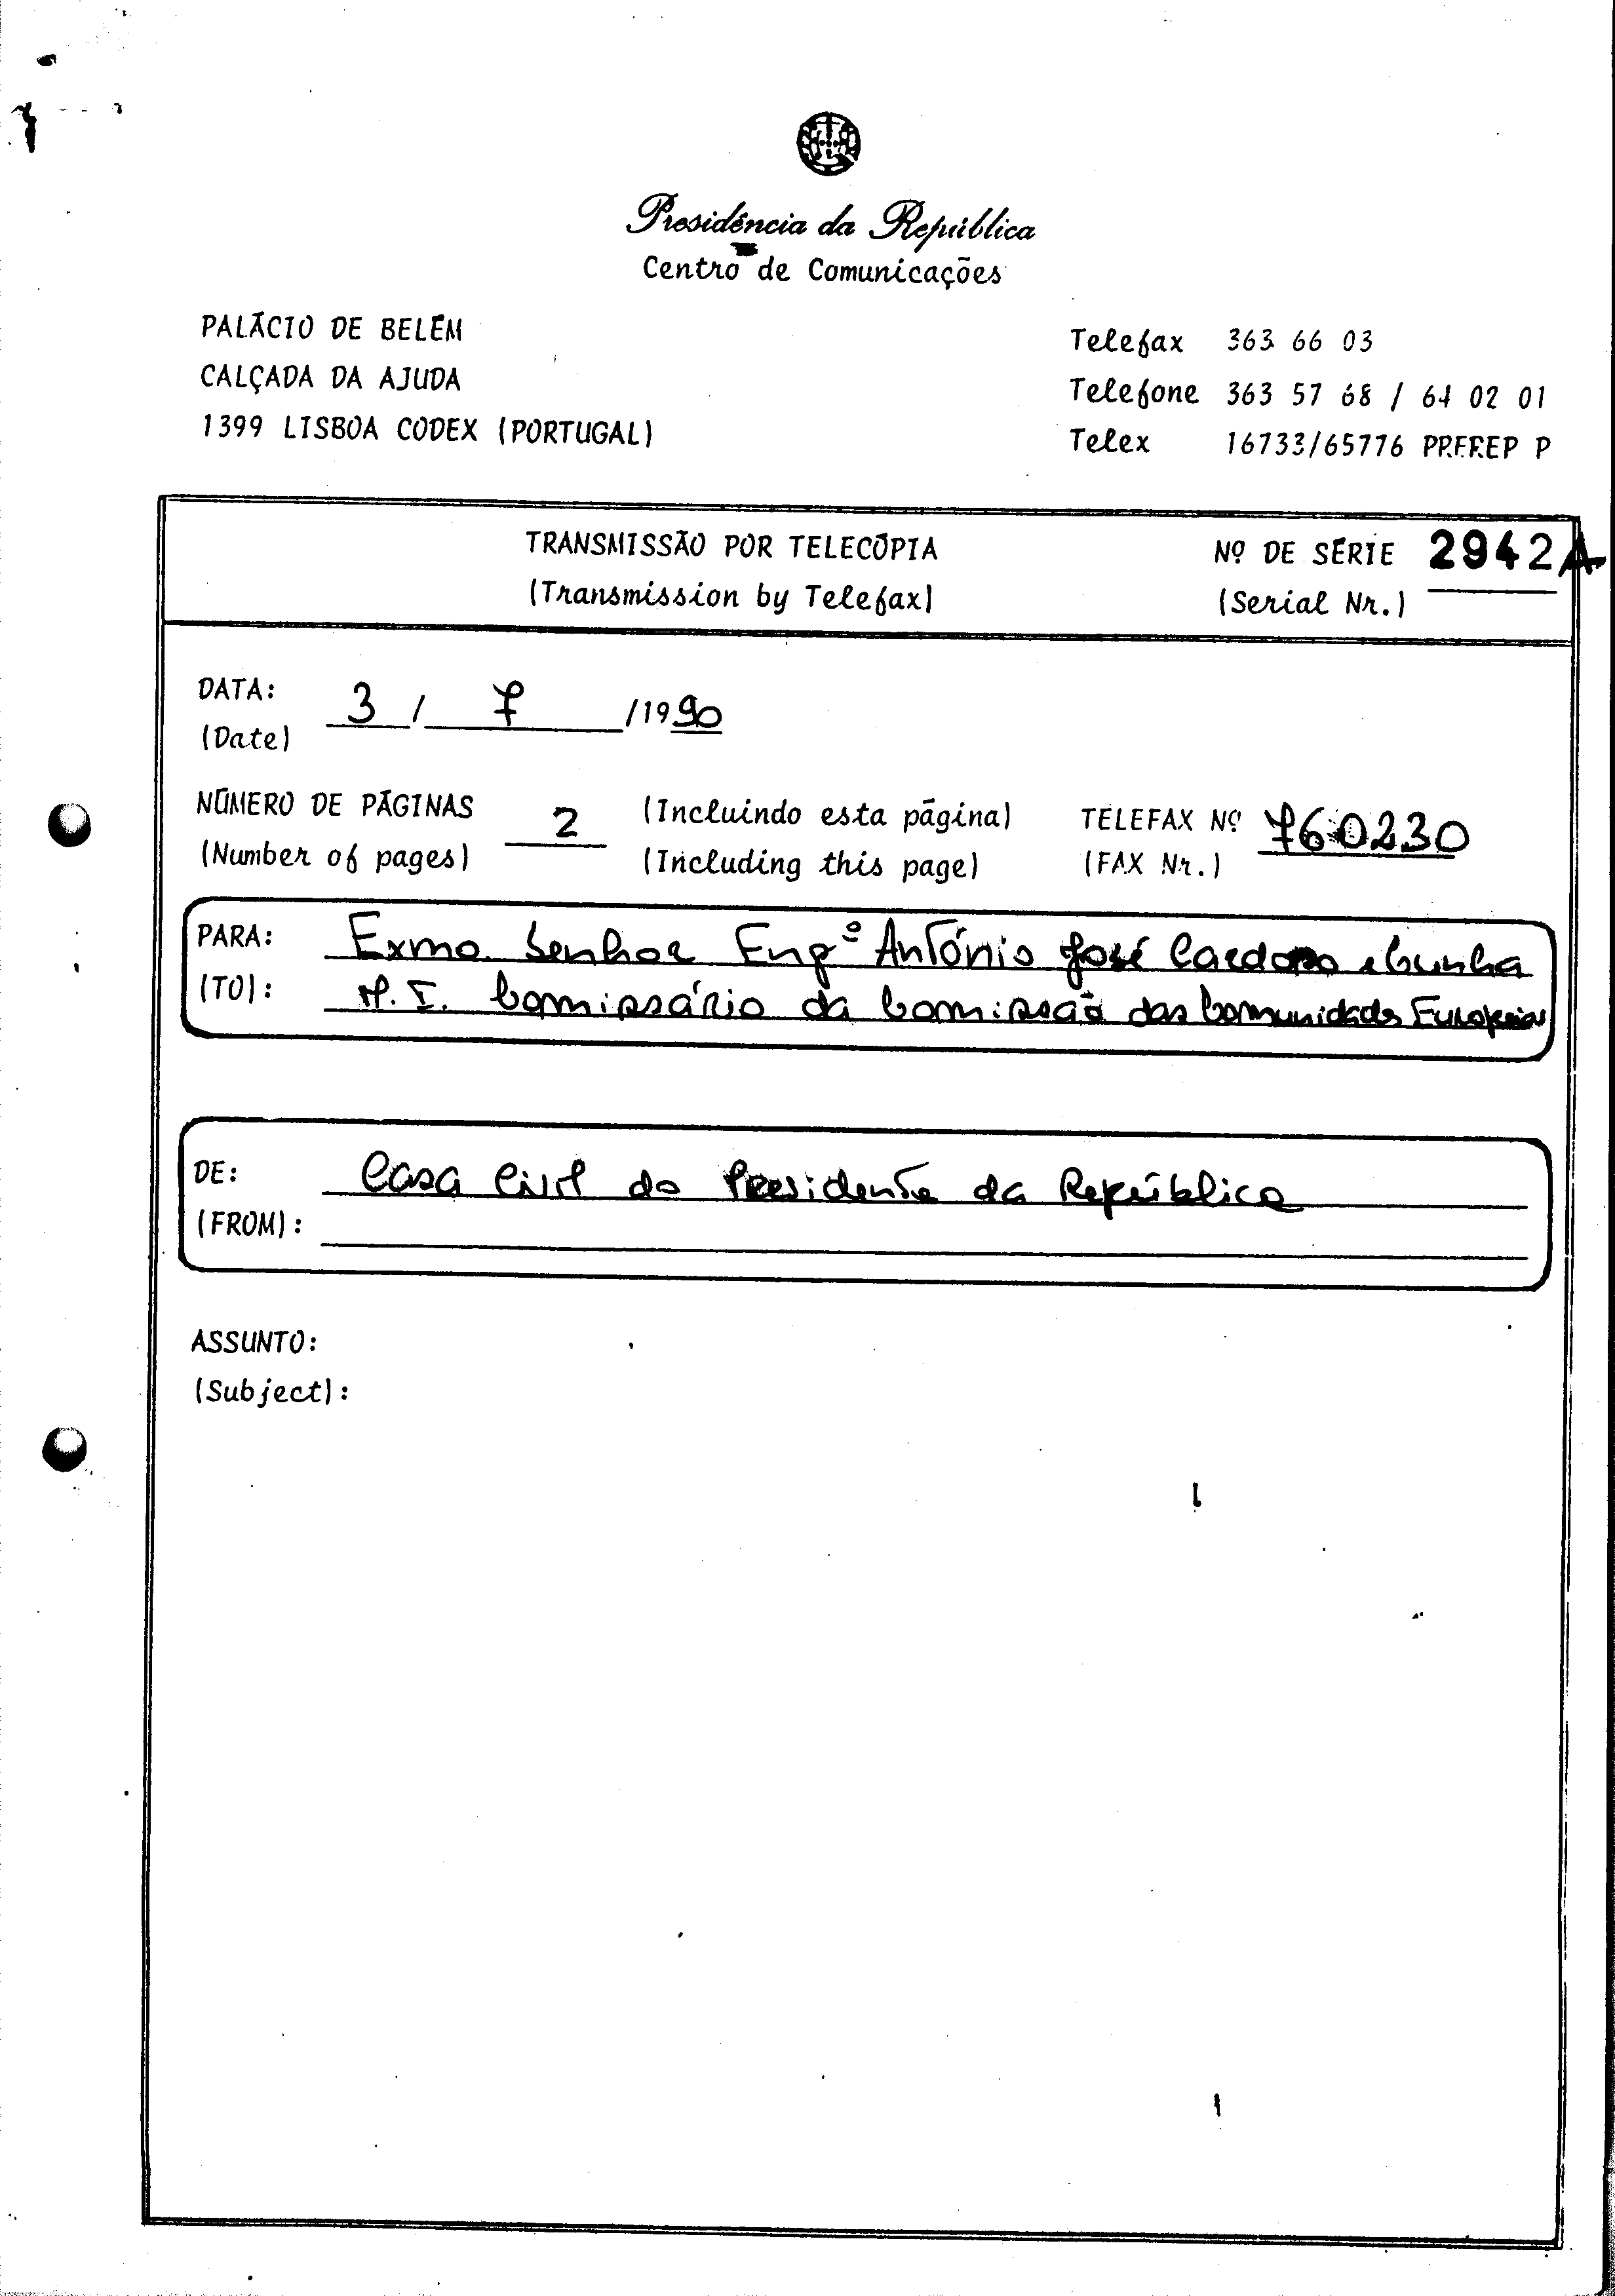 Presidência da República
Centro de Comunicações
PALÁCIO DE BELÉM
CALÇADA DA AJUDA
1399 LISBOA CODEX (PORTUGAL)
Telefax 363 66 03
Telefone 363 57 68 / 64 02 01
Telex 16733/65776 PREREP P
TRANSMISSÃO POR TELECÓPIA
(Transmission by Telefax)
Nº DE SÉRIE 2942A
(Serial Nr.)
DATA: 3 / 7 /1990
(Date)
NÚMERO DE PÁGINAS 2 (Incluindo esta página)
(Number of pages) (Including this page)
TELEFAX Nº 760230
(FAX Nr.)
PARA: Exmo. Senhor Engº António José Cardoso e Cunha
(TO): M. I. Comissário da Comissão das Comunidades Europeias
DE: Casa Civil do Presidente da República
(FROM):
ASSUNTO:
(Subject):